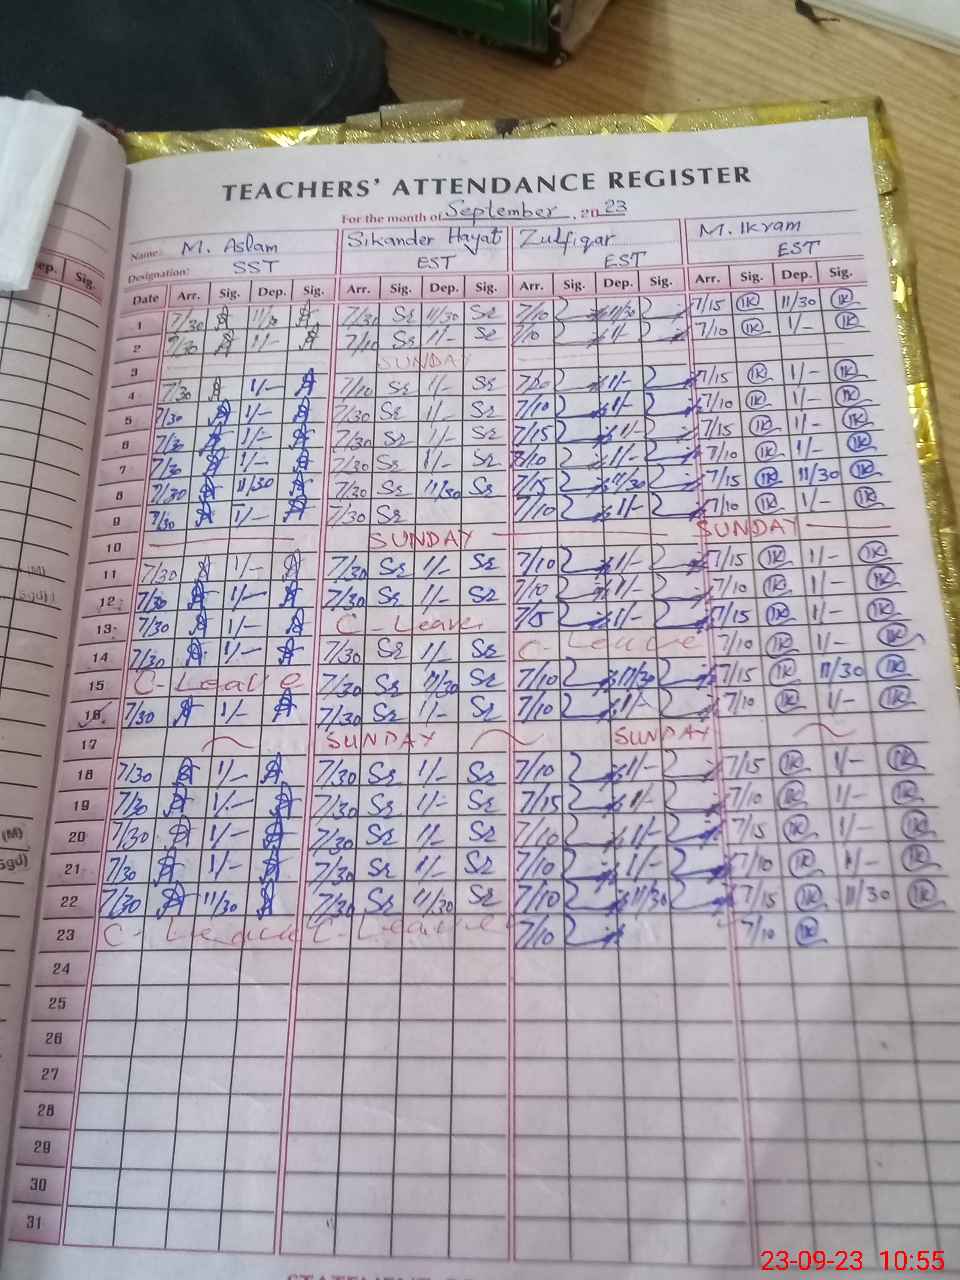 TEACHERS' ATTENDANCE REGISTER
For the month of September, 2023
Name: M. Aslam Sikander Hayat Zulfiqar M. Ikram
Designation: SST EST EST EST
ep. Sig. Date Arr. Sig. Dep. Sig. Arr. Sig. Dep. Sig. Arr. Sig. Dep. Sig. Arr. Sig. Dep. Sig.
1 7/30 11/30 7/30 Sr 11/30 Sr 7/10 11/30 7/15 IK 11/30 IK
2 7/30 1/- 7/10 Sr 1/- Sr 7/10 1/- 7/10 IK 1/- IK
3 SUNDAY
4 7/30 1/- 7/10 Sr 1/- Sr 1/- 7/15 IK 1/- IK
5 7/30 1/- 7/30 Sr 1/- Sr 7/10 1/- 7/10 IK 1/- IK
6 7/30 1/- 7/30 Sr 1/- Sr 7/15 1/- 7/15 IK 1/- IK
7 7/30 1/- 7/30 Sr 1/- Sr 7/10 1/- 7/10 IK 1/- IK
8 7/30 11/30 7/30 Sr 11/30 Sr 7/15 11/30 7/15 IK 11/30 IK
9 7/30 1/- 7/30 Sr 7/10 1/- 7/10 IK 1/- IK
10 SUNDAY SUNDAY
11 7/30 1/- 7/30 Sr 1/- Sr 7/10 1/- 7/15 IK 1/- IK
12 7/30 1/- 7/30 Sr 1/- Sr 7/10 1/- 7/10 IK 1/- IK
13 7/30 1/- C-Leave 1/- 7/15 IK 1/- IK
14 7/30 1/- 7/30 Sr 1/- Sr C-Leave 7/10 IK 1/- IK
15 C-Leave 7/30 Sr 11/30 Sr 7/10 11/30 7/15 IK 11/30 IK
16 7/30 1/- 7/30 Sr 1/- Sr 7/10 1/- 7/10 IK 1/- IK
17 SUNDAY SUNDAY
18 7/30 1/- 7/30 Sr 1/- Sr 7/10 1/- 7/15 IK 1/- IK
19 7/30 1/- 7/30 Sr 1/- Sr 7/15 1/- 7/10 IK 1/- IK
20 7/30 1/- 7/30 Sr 1/- Sr 7/10 1/- 7/15 IK 1/- IK
21 7/30 1/- 7/30 Sr 1/- Sr 7/10 1/- 7/10 IK 1/- IK
22 7/30 11/30 7/30 Sr 11/30 Sr 7/10 11/30 7/15 IK 11/30 IK
23 C-Leave C-Leave 7/10 7/10 IK
24
25
26
27
28
29
30
31
23-09-23 10:55